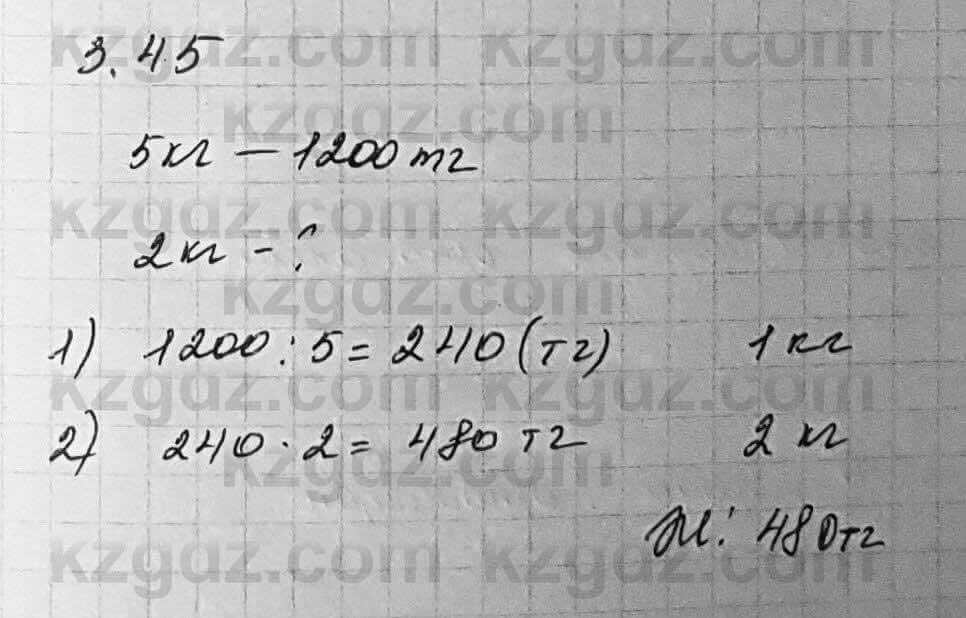 3.45
5кг – 1200 тг
2кг – ?
1) 1200 : 5 = 240 (тг) 1 кг
2) 240 · 2 = 480 тг 2 кг
Ж: 480тг
kzgdz.com kzgdz.com
kzgdz.com
kzgdz.com kzgdz.com
kzgdz.com
kzgdz.com kzgdz.com
kzgdz.com
kzgdz.com kzgdz.com